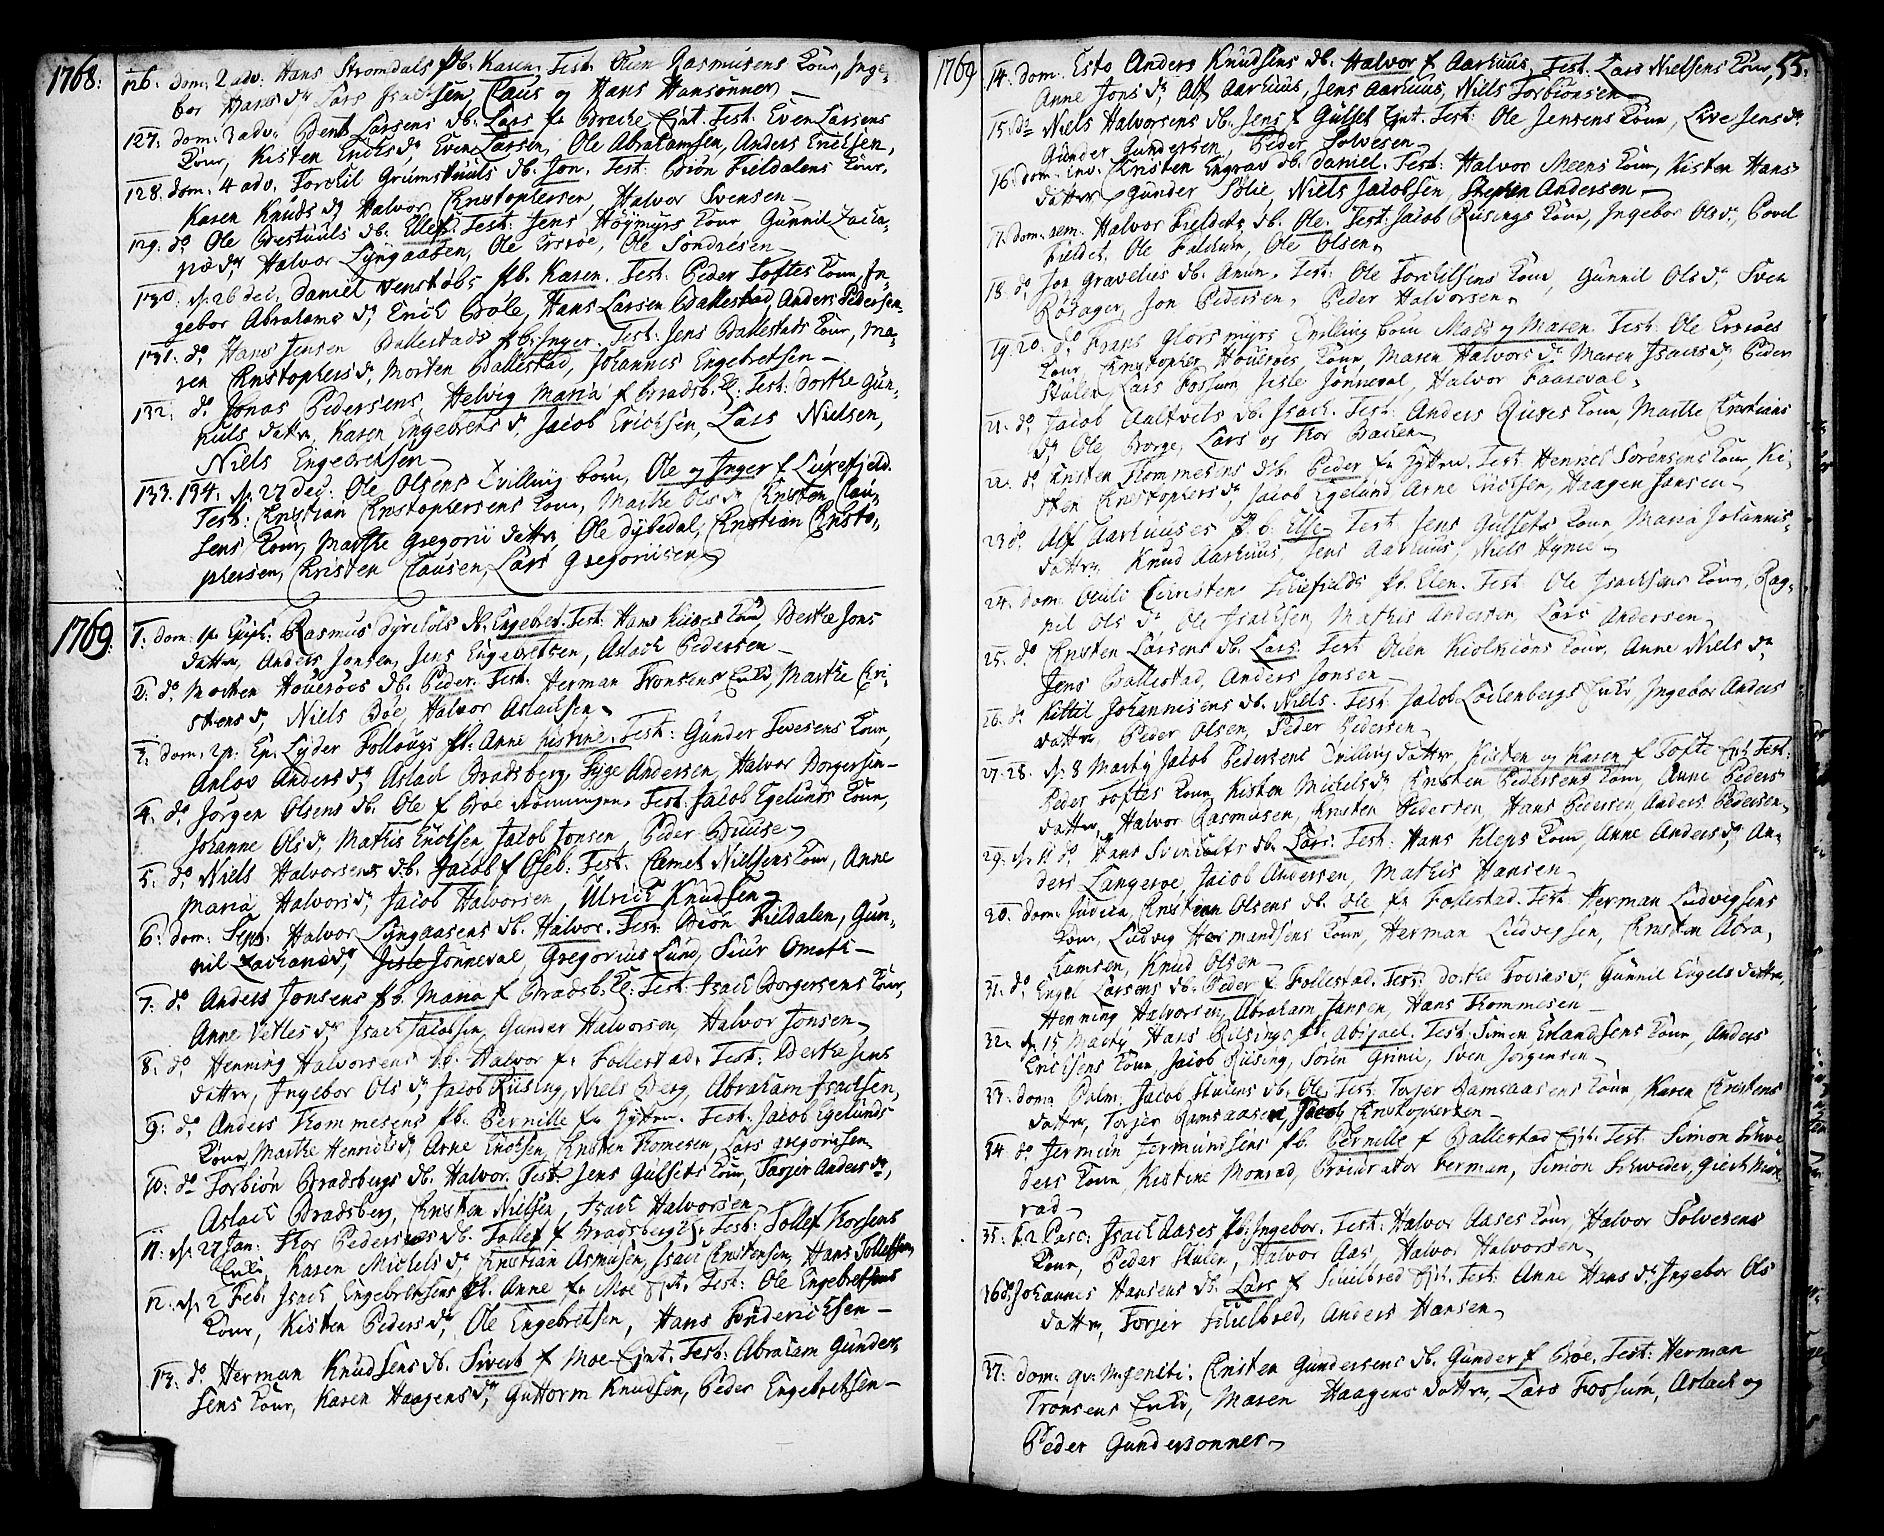 1768:
126. dom: 2 adv: Hans Stromdals fb. Karen. Test. Oien Rasmusens Kone, Inge-
bor Hans dr Lars Isachsen, Claus og Hans Hansønner
127. dom: 3 adv: Bent Larsens db. Lars fr Brecke Ejnt. Test: Even Larsens
Kone, Kisten Erichs dr Even Larsen, Ole Abrahamsen, Anders Erichsen,
128. dom: 4 adv. Torchil Grumstuuls db. Jon. Test: Biøn Fieldalens Kone,
Karen Knuds dr Halvor Christophersen, Halvor Svensen
129. do Ole Brestuuls db. Ellef. Test: Jens Høymyrs Kone Gunnil Zacha-
riæ dr Halvor Lyngaasen, Ole Ersroe, Ole Sondresen
130. d. 26 dec. Daniel Venstøbs fb. Karen. Test. Peder Toftes Kone, In-
gebor Abrahams dr Erich Bøle, Hans Larsen Ballestad, Anders Pedersen
131. do Hans Jensen Ballestads fb. Inger. Test: Jens Ballestads Kone, Ma-
ren Christophers dr Morten Ballestad, Johannes Engebretsen
132: do Jonas Pedersens Helvig Maria f Bradsb. Test: Dorthe Gun-
huls datter, Karen Engebrets dr Jacob Erichsen, Lars Nielsen,
Niels Engebretsen
133. 134. d. 27 Dec: Ole Olsens Tvilling børn, Ole og Inger f Luxefjeld.
Test: Christian Christophersens Kone, Marthe Ols dr Christen Clau-
sens Kone, Marthe Gregorii datter, Ole Dybedal, Christian Christo-
phersen, Christen Clausen, Lars Gregoriisen
1769:
1. dom: 1 p. Epiph: Rasmus Dyrcols db. Engebret. Test: Hans Kises Kone, Berthe Jons
datter, Anders Jonsen, Jens Engebretsen, Aslach Pedersen
2: do Morten Houerøes db. Peder. Test: Herman Tronsens Enke, Marthe Chri-
stens dr, Niels Bøe, Halvor Aslachsen
3. dom: 2 p: Ep: Lyder Follougs fb: Anne Kistine. Test: Gunder Ivesens Kone,
Anlov Anders dr Aslach Bradsberg, Tyge Andersen, Halvor Borgersen
4. do Jørgen Olsens db. Ole f Bøe Rønningen. Test: Jacob Egelunds Kone,
Johanne Ols dr Mathis Enochsen, Jacob Jonsen, Peder Bruuse
5: do Niels Halvorsens db. Jacob f Oseb: Test: Clemet Nielsens Kone, Anne
Maria Halvors dr Jacob Halvorsen, Ulrich Knudsen
6: dom: Sept: Halvor Lyngaasens db. Halvor. Test: Biøn Fieldalen, Gun-
nil Zachariæ dr Jisle Jønneval, Gregorius Lund, Siur Omeli
7: do Anders Jonsens fb. Maria f Bradsb. Test: Isach Borgersens Kone,
Anne Vetles dr Isach Jacobsen, Gunder Halvorsen, Halvor Jonsen
8: do Henning Halvorsens db. Halvor fr Follestad. Test: Berthe Jens
datter, Ingebor Ols dr Jacob Rising, Niels Berg, Abraham Isachsen,
9: do Anders Thommesens fb. Pernille fr Hytten. Test: Jacob Egelunds
Kone, Marthe Henrichs dr Arne Enochsen, Christen Thomesen, Lars Gregoriisen
10: do Torbiøn Bradsbergs db. Halvor. Test: Jens Gulsets Kone, Torjer Anders dr,
Aslach Bradsberg, Christen Nielsen, Isach Halvorsen
11: d. 27 Jan: Thor Pedersens db. Tollef f Bradsberg. Test: Tollef Thorsens
Enke Karen Michels dr Christian Asmusen, Isach Christensen, Hans Tollefsen
12. d. 2 Feb: Isach Engebretsens fb. Anne fr Moe Ejnt. Test: Ole Engebretsens
Kone, Kisten Peders dr, Ole Engebretsen, Hans Friderichsen
13: do Herman Knudsens db. Sivert f Moe Ejnt. Test: Abraham Gunder-
sens Kone, Karen Haagens dr Guttorm Knudsen, Peder Engebretsen
1769
55.
14. dom. Esto Anders Knudsens db. Halvor f Aarhuus, Test. Lars Nielsens Kone,
Anne Jons dr Alf Aarhuus, Jens Aarhuus, Niels Torbiønsen
15. do Niels Halvorsens db. Jens f Gulset Ejnt. Test: Ole Jensens Kone, Live Jens dr
Gunder Gundersen, Peder Solvesen
16. dom: Christen Engrav db. Daniel. Test: Halvor Meens Kone, Kisten Hans
datter, Gunder Bølie, Niels Jacobsen, Stephen Andersen
17. dom: rem. Halvor Fieldets db. Ole. Test: Jacob Risings Kone, Ingebor Ols dr Povel
Fieldet, Ole Falchum, Ole Olsen
18. do Jon Gravelies db. Amun. Test: Ole Torchilsens Kone, Gunnil Ols dr Sven
Rosager, Jon Pedersen, Peder Halvorsen
19. 20. do Frans Glorsmyrs Tvilling børn Mads og Maren. Test: Ole Ersroes
Kone, Christopher Houerøes Kone, Maren Halvors dr Maren Isachs dr Peder
Stulen, Lars Fossum, Jisle Jønneval, Halvor Faareval
21. do Jacob Aaltvets db. Isach. Test: Anders Rises Kone, Marthe Christians
dr Ole Borge, Lars og Thor Backen
22. do Christen Thommesens db. Peder fr Hytten. Test: Hennel Sørensens Kone, Ki-
sten Christophers dr Jacob Egelund Arne Enochsen, Haagen Jansen
23 do Alf Aarhuuses fb. Else. Test Jens Gulsets Kone, Maria Johannis-
datter, Knud Aarhuus, Jens Aarhuus, Niels Hynie
24. dom. Oculi Christens Schifields fb. Elen. Test Ole Isachsens Kone, Rag-
nil Ols dr Ole Isachsen, Mathis Andersen, Lars Andersen
25. do Christen Larsens db. Lars. Test Oien Kiolniøns Kone, Anne Niels dr
Jens Ballestad, Anders Jonsen
26. do Kittil Johannisens db. Niels. Test: Jacob Lochenbergs Enke, Ingebor Anders
datter, Peder Olsen, Peder Pedersen
27. 28. d. 8 Martij Jacob Pedersens Tvilling datter, Kisten og Karen f Tofte Ejnt. Test:
Peder Toftes Kone, Kisten Michels dr Christen Pedersens Kone, Anne Peders
datter, Halvor Rasmusen, Christen Pedersen, Hans Pedersen, Anders Pedersen
29. d. do Hans db. Lars. Test: Hans Kleps Kone, Anne Anders dr An-
ders Langeroe, Jacob Andersen, Mathis Hansen
30. dom: Judica, Christen Olsens db. Ole fr Follestad. Test: Herman Ludvigsens
Kone, Ludvig Hermandsens Kone, Herman Ludvigsen, Christen Abra-
hamsen, Knud Olsen
31. do Engel Larsens db. Peder f. Follestad. Test: Dorthe Tobias dr Gunnil Engels datter,
Henning Halvorsen, Abraham Jansen, Hans Thommesen
32. d. 15 Martij Hans Risings fb. Abigael. Test: Simen Erlandsens Kone, Anders
Erichsens Kone, Jacob Rising, Søren Grinii, Sven Jørgensen
33. dom: Palm: Jacob Stulens db. Ole. Test: Torjer Ramsaasens Kone, Karen Christens
datter, Torjer Ramsaasen, Jacob Christophersen
34 do Jermun Jermunsens fb. Pernille f Ballestad Ejnt. Test: Simon Schve-
ders Kone, Kistine Monrad, Procurator Herman, Simon Schweder, Giert Mon-
rad
35: f. 2 Pasc: Isach Aases fb. Ingebor. Test: Halvor Aases Kone, Halvor Solvesens
Kone, Peder Stulen, Halvor Aas, Halvor Halvorsen
36 do Johannes Hansens db. Lars f Skilbred Ejnt. Test: Anne Hans dr Ingebor Ols
datter, Torjer Skilbred, Anders Hansen
37: dom: qv. Mgeniti: Christen Gundersens db. Gunder f Bøe. Test: Herman
Tronsens Enke, Maren Haagens datter, Lars Fossum, Aslach og
Peder Gundersønner